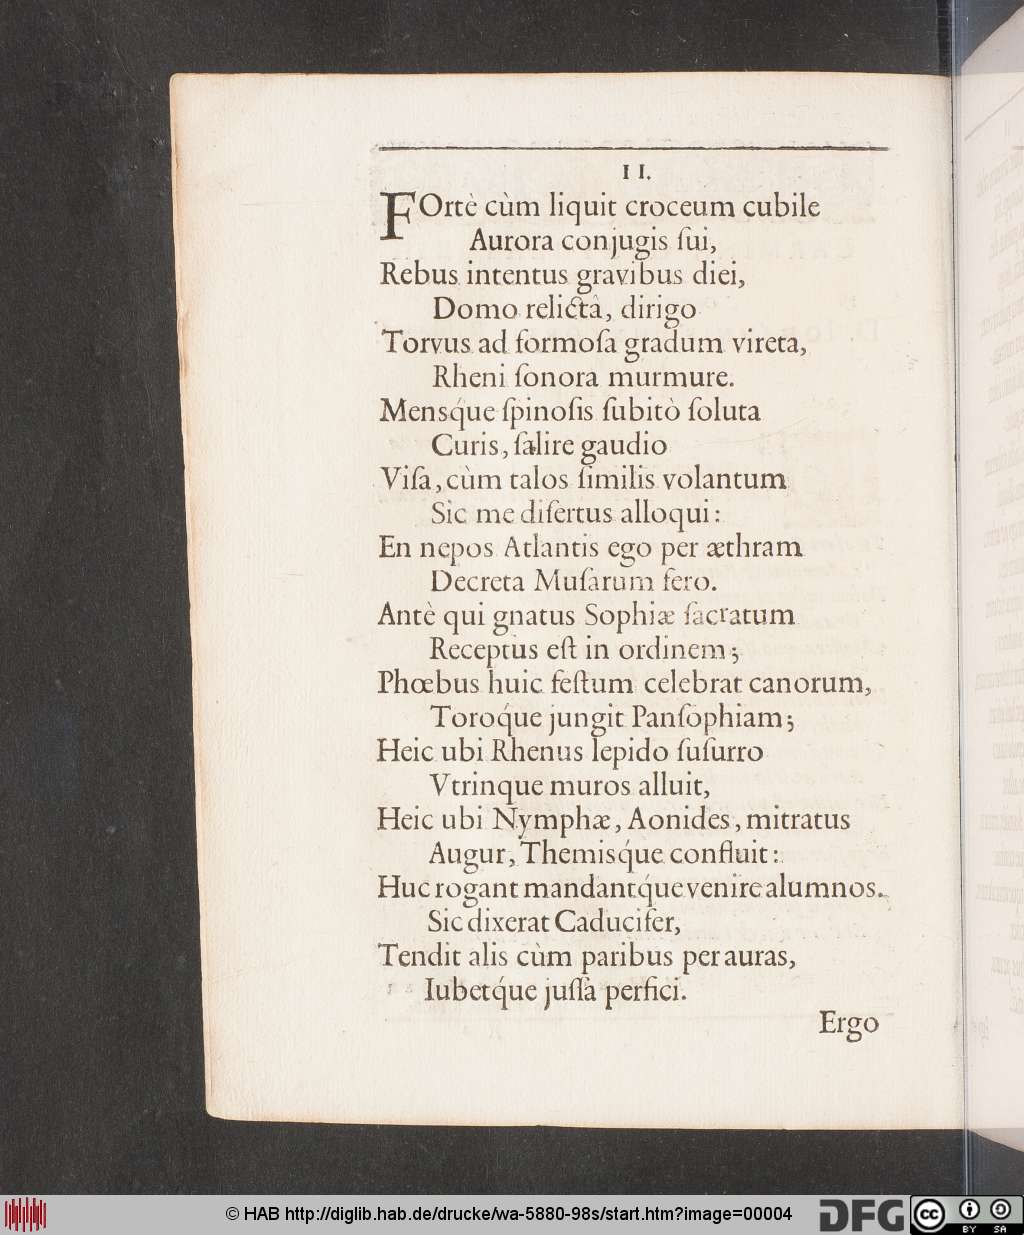 II.
FOrtè cùm liquit croceum cubile
Aurora conjugis ſui,
Rebus intentus gravibus diei,
Domo relictâ, dirigo
Torvus ad formoſa gradum vireta,
Rheni ſonora murmure.
Mensq́ue ſpinoſis ſubitò ſoluta
Curis, ſalire gaudio
Viſa, cùm talos ſimilis volantum
Sic me diſertus alloqui:
En nepos Atlantis ego per æthram
Decreta Muſarum fero.
Antè qui gnatus Sophiæ ſacratum
Receptus eſt in ordinem;
Phœbus huic feſtum celebrat canorum,
Toroq́ue jungit Panſophiam;
Heic ubi Rhenus lepido ſuſurro
Vtrinque muros alluit,
Heic ubi Nymphæ, Aonides, mitratus
Augur, Themisq́ue confluit:
Huc rogant mandantq́ue venire alumnos.
Sic dixerat Caducifer,
Tendit alis cùm paribus per auras,
Iubetq́ue juſſa perfici.
Ergo
© HAB http://diglib.hab.de/drucke/wa-5880-98s/start.htm?image=00004
DFG
cc BY SA